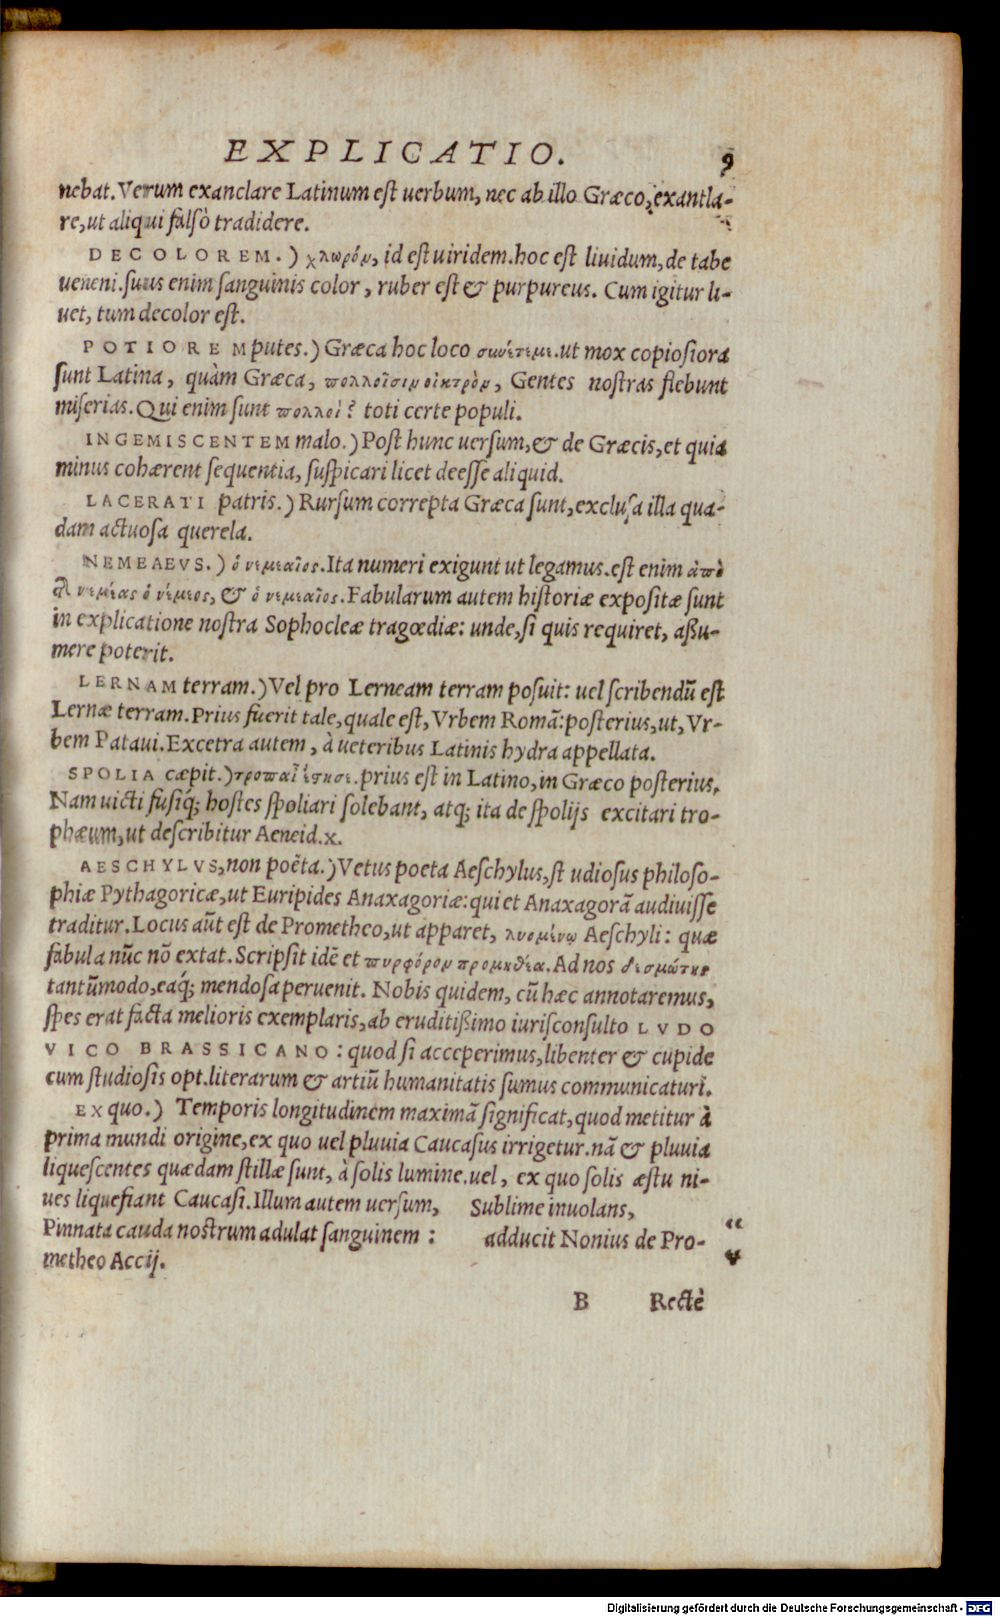 EXPLICATIO. 9
nebat. Verum exanclare Latinum est uerbum, nec ab illo Græco, exantla-
re, ut aliqui falsò tradidere.
DECOLOREM.) χλωρόν, id est uiridem. hoc est liuidum, de tabe
ueneni. suus enim sanguinis color, ruber est & purpureus. Cum igitur li-
uet, tum decolor est.
POTIOREM putes.) Græca hoc loco σωέτεμε. ut mox copiosiora
sunt Latina, quàm Græca, πολλοῖσιν οἰκτρὸν, Gentes nostras flebunt
miserias. Qui enim sunt πολλοὶ? toti certe populi.
INGEMISCENTEM malo.) Post hunc uersum, & de Græcis, et quia
minus cohærent sequentia, suspicari licet deesse aliquid.
LACERATI patris.) Rursum correpta Græca sunt, exclusa illa qua-
dam actuosa querela.
NEMEAEVS.) ὁ νεμεαῖος. Ita numeri exigunt ut legamus. est enim ἀπὸ
νεμέας ὁ νέμεος, & ὁ νεμεαῖος. Fabularum autem historiæ expositæ sunt
in explicatione nostra Sophocleæ tragœdiæ: unde, si quis requiret, aßu-
mere poterit.
LERNAM terram.) Vel pro Lerneam terram posuit: uel scribendũ est
Lernæ terram. Prius fuerit tale, quale est, Vrbem Romã: posterius, ut, Vr-
bem Pataui. Excetra autem, à ueteribus Latinis hydra appellata.
SPOLIA cæpit.) τροπαῖ ἔστησε. prius est in Latino, in Græco posterius.
Nam uicti fusiq́; hostes spoliari solebant, atq; ita de spolijs excitari tro-
phæum, ut describitur Aeneid. x.
AESCHYLVS, non poëta.) Vetus poeta Aeschylus, st udiosus philoso-
phiæ Pythagoricæ, ut Euripides Anaxagoriæ: qui et Anaxagorã audiuisse
traditur. Locus aũt est de Prometheo, ut apparet, λυομένῳ Aeschyli: quæ
fabula nũc nõ extat. Scripsit idẽ et πυρφόρον προμηθέα. Ad nos δεσμώτης
tantũmodo, eaq́; mendosa peruenit. Nobis quidem, cũ hæc annotaremus,
spes erat facta melioris exemplaris, ab eruditißimo iurisconsulto LVDO
VICO BRASSICANO: quod si acceperimus, libenter & cupide
cum studiosis opt. literarum & artiũ humanitatis sumus communicaturi.
EX quo.) Temporis longitudinem maximã significat, quod metitur à
prima mundi origine, ex quo uel pluuia Caucasus irrigetur. nã & pluuia
liquescentes quædam stillæ sunt, à solis lumine. uel, ex quo solis æstu ni-
ues liquefiant Caucasi. Illum autem uersum, Sublime inuolans,
Pinnata cauda nostrum adulat sanguinem: adducit Nonius de Pro- “
metheo Accij.
B Rectè
Digitalisierung gefördert durch die Deutsche Forschungsgemeinschaft - DFG